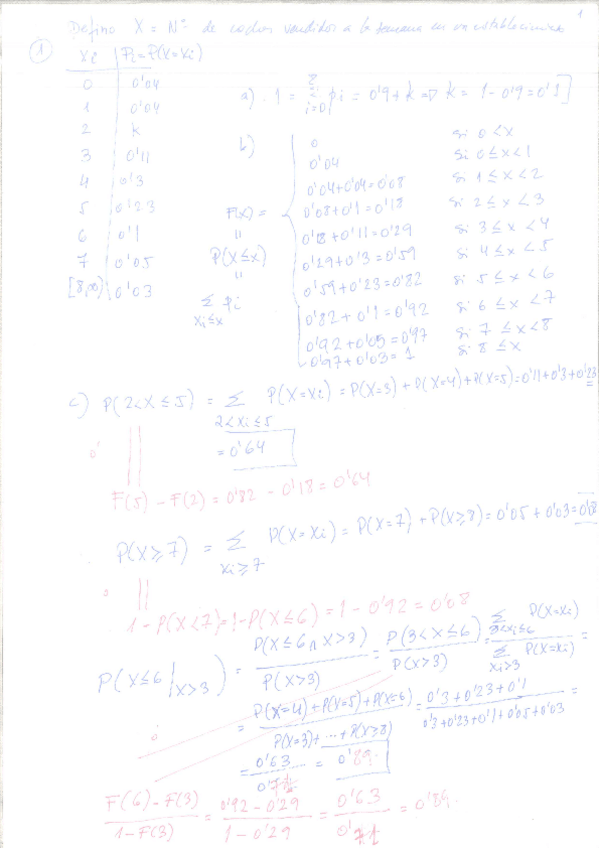 1
Defino X = Nº de coches vendidos a la semana en un establecimiento
1
xi Pi = P(X = xi)
0 0'04
1 0'04
2 k
3 0'11
4 0'3
5 0'23
6 0'1
7 0'05
[8,∞) 0'03
a) . 1 = Σ i=0 pi = 0'9 + k ⇒ k = 1 - 0'9 = 0'1]
b)
F(x) =
"
P(X ≤ x)
"
Σ pi
xi ≤ x
0 si 0 < x
0'04 si 0 ≤ x < 1
0'04 + 0'04 = 0'08 si 1 ≤ x < 2
0'08 + 0'1 = 0'18 si 2 ≤ x < 3
0'18 + 0'11 = 0'29 si 3 ≤ x < 4
0'29 + 0'3 = 0'59 si 4 ≤ x < 5
0'59 + 0'23 = 0'82 si 5 ≤ x < 6
0'82 + 0'1 = 0'92 si 6 ≤ x < 7
0'92 + 0'05 = 0'97 si 7 ≤ x < 8
0'97 + 0'03 = 1 si 8 ≤ x
c) P(2 < X ≤ 5) = Σ P(X = xi) = P(X=3) + P(X=4) + P(X=5) = 0'11 + 0'3 + 0'23
2 < xi ≤ 5
= 0'64
o'
F(5) - F(2) = 0'82 - 0'18 = 0'64
P(X ≥ 7) = Σ P(X = xi) = P(X = 7) + P(X ≥ 8) = 0'05 + 0'03 = 0'08
xi ≥ 7
1 - P(X < 7) = 1 - P(X ≤ 6) = 1 - 0'92 = 0'08
P(X ≤ 6 | X > 3) = P(X ≤ 6 ∩ X > 3) / P(X > 3) = P(3 < X ≤ 6) / P(X > 3) = Σ 3<xi≤6 P(X = xi) / Σ xi>3 P(X = xi) =
= P(X=4) + P(X=5) + P(X=6) / P(X=3) + ... + P(X ≥ 8) = 0'3 + 0'23 + 0'1 / 0'3 + 0'23 + 0'1 + 0'05 + 0'03 =
= 0'63 / 0'71 = 0'89.
F(6) - F(3) / 1 - F(3) = 0'92 - 0'29 / 1 - 0'29 = 0'63 / 0'71 = 0'89.